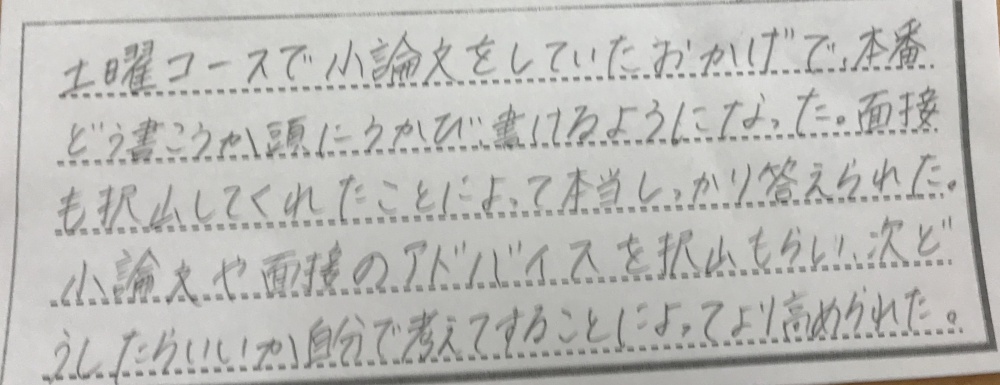 土曜コースで小論文をしていたおかげで、本番
どう書こうか頭にうかび、書けるようになった。面接
も択山してくれたことによって本当しっかり答えられた。
小論文や面接のアドバイスを択山もらい、次ど
うしたらいいか自分で考えてすることによってより高められた。